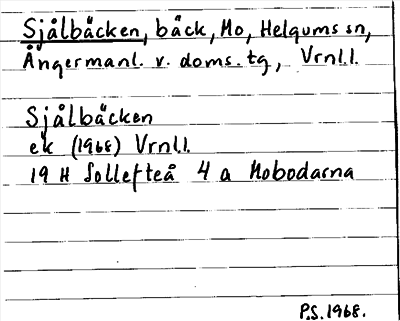 Själbäcken, bäck, Mo, Helgums sn,
Ångermanl. v. doms. tg, Vrnl.l.
Själbäcken
ek (1968) Vrnl.l.
19 H Sollefteå 4 a Mobodarna
P.S. 1968.